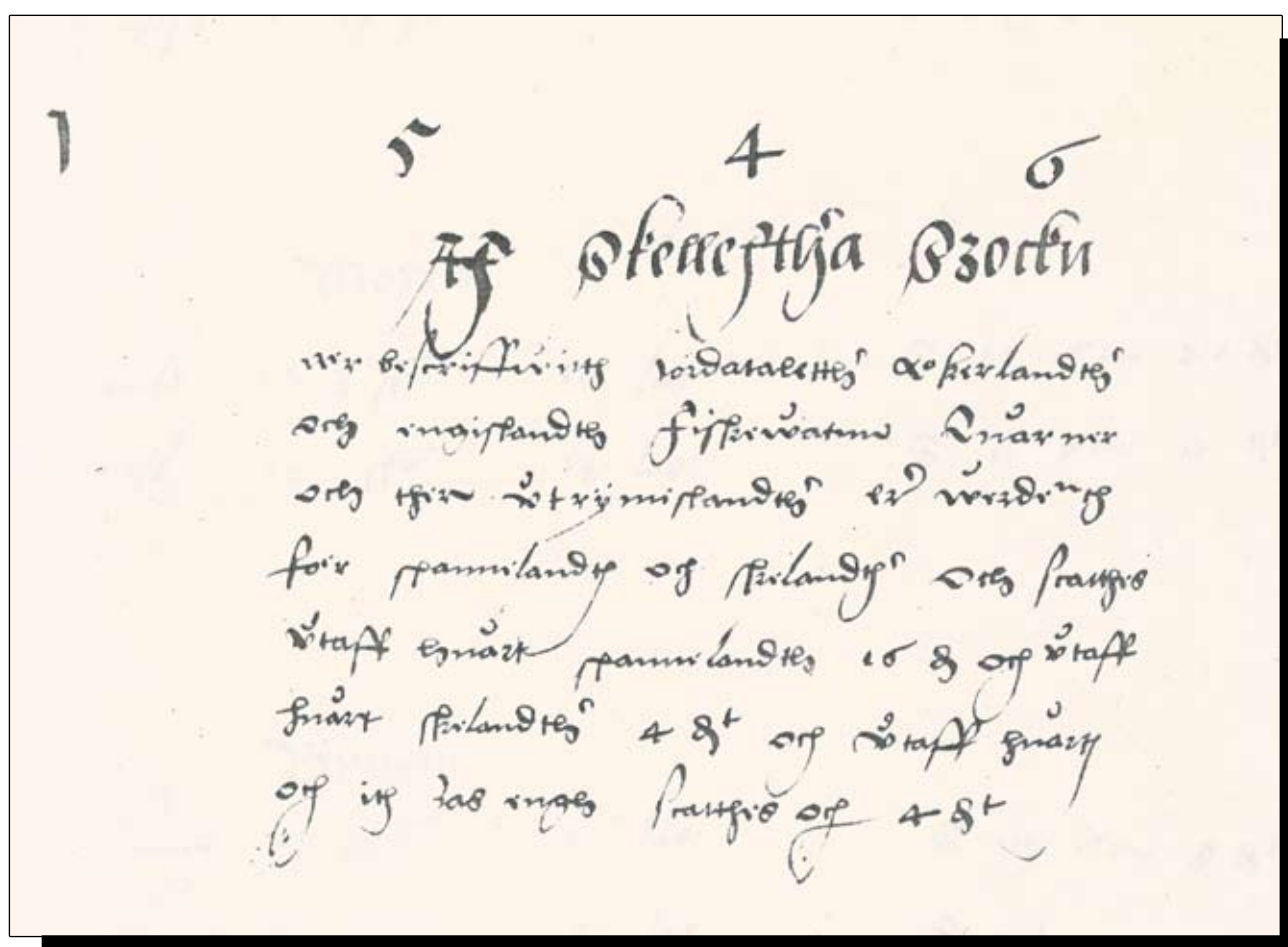 1 5 4 6
Skelleftha Szockn
ær bescriffuith iordataletth Åkerlandth
och engislandth Fiskewatnn Quarner
och then vtrymislandth er werdenth
foer spannelandh och skelandh och scatthes
vtaff huart spannelandth 16 och vtaff
huart skelandth 4 och vtaff huart
och ith las engh scatthes och 4